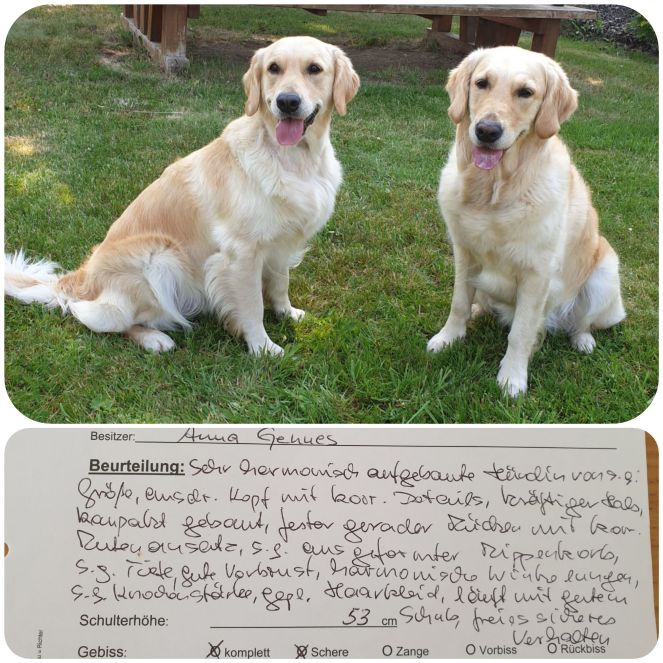 Besitzer: Anna Gehnes
Beurteilung: Sehr harmonisch aufgebaute Hündin von s.g.
Größe, ausdr. Kopf mit korr. Details, kräftiger Hals,
kompakt gebaut, fester gerader Rücken mit kor.
Rutenansatz, s.g. ausgeformter Rippenkorb,
s.g. Tiefe, gute Vorbrust, harmonische Winkelungen,
s.g. Knochenstärke, gepfl. Haarkleid, läuft mit gutem
Schub, freies sicheres
Verhalten
Schulterhöhe: 53 cm
Gebiss: komplett Schere Zange Vorbiss Rückbiss
Richter